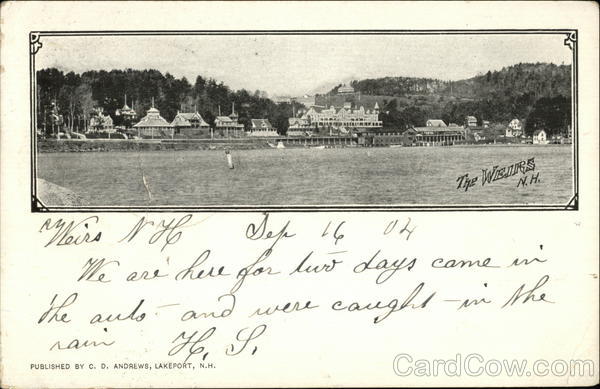 The WEIRS
N.H.
Weirs N H Sep 16 04
We are here for two days came in
the auto - and were caught - in the
rain H. S.
PUBLISHED BY C. D. ANDREWS, LAKEPORT, N.H.
CardCow.com